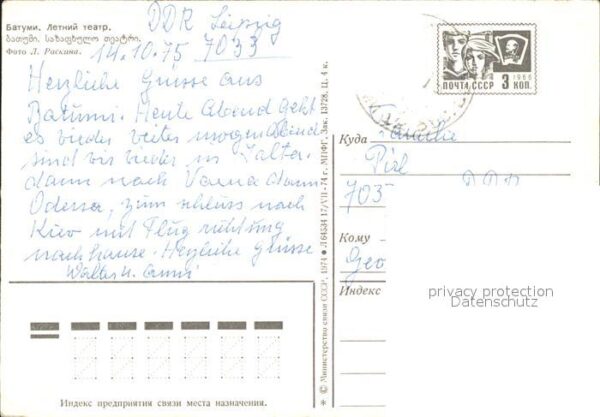 Батуми. Летний театр.
ბათუმი. საზაფხულო თეატრი.
Фото Л. Раскина.
DDR Leipzig
14.10.75 7033
Herzliche Grüsse aus
Batumi. Heute Abend geht
es wieder weiter morgen Abend
sind wir wieder in Jalta.
dann nach Varna dann
Odessa, zum schluss nach
Kiev mit Flug richtung
nachhause. Herzliche Grüsse
Walter u. Anni
ПОЧТА СССР 3 КОП.
1966
Куда Familie
DDR
703
Кому
Geo
Индекс
privacy protection
Datenschutz
* © Министерство связи СССР, 1974 ● Л 64534 17/VII-74 г. МПФГ. Зак. 13728. Ц. 4 к.
Индекс предприятия связи места назначения.